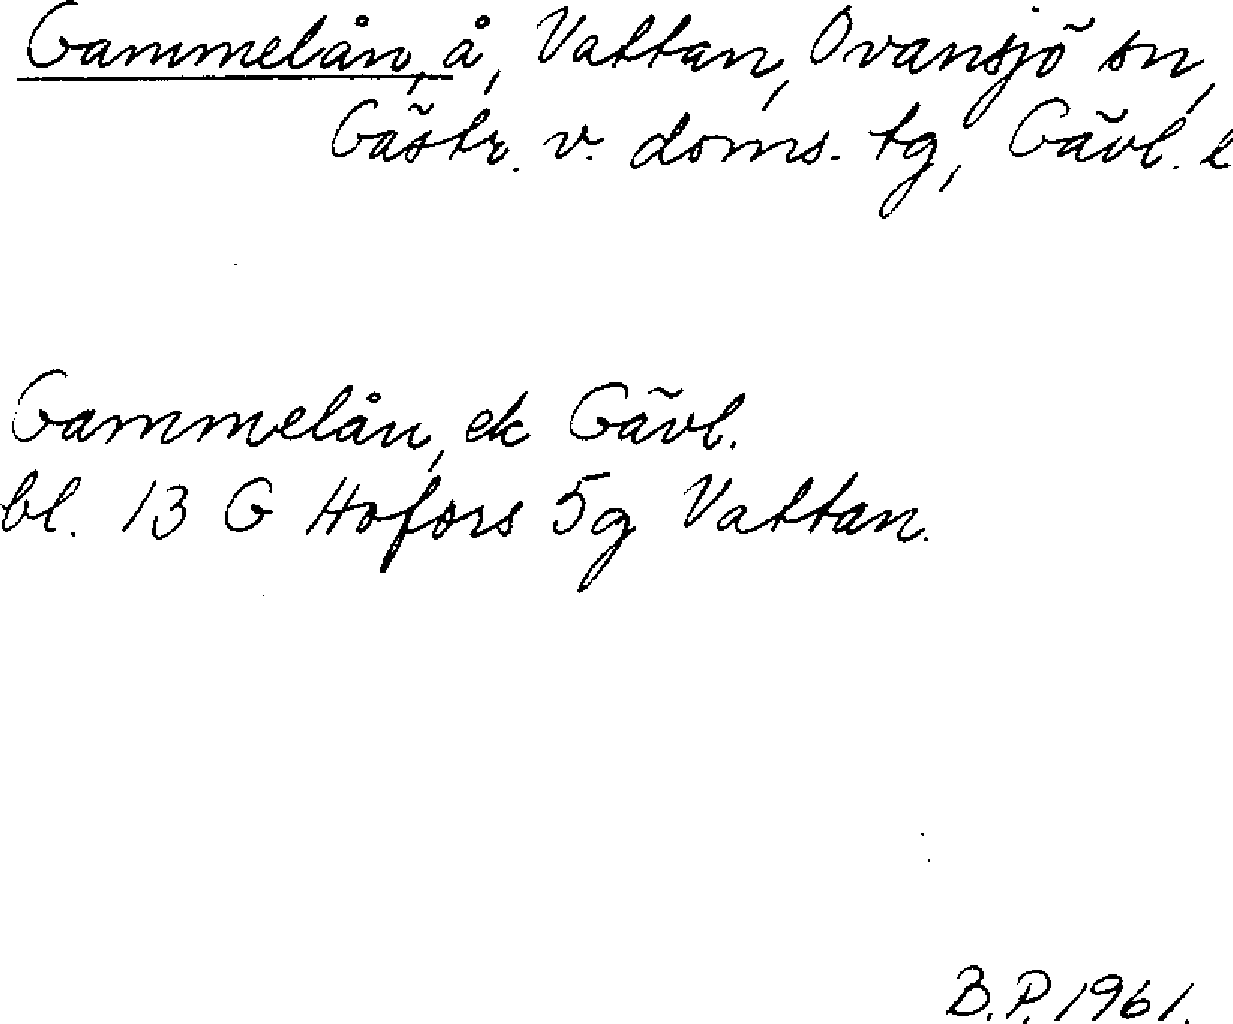 Gammelån, å, Vattan, Ovansjö sn,
Gästr. v. doms. tg, Gävl. l
Gammelån, ek Gävl.
bl. 13 G Hofors 5g Vattan.
B.P. 1961.